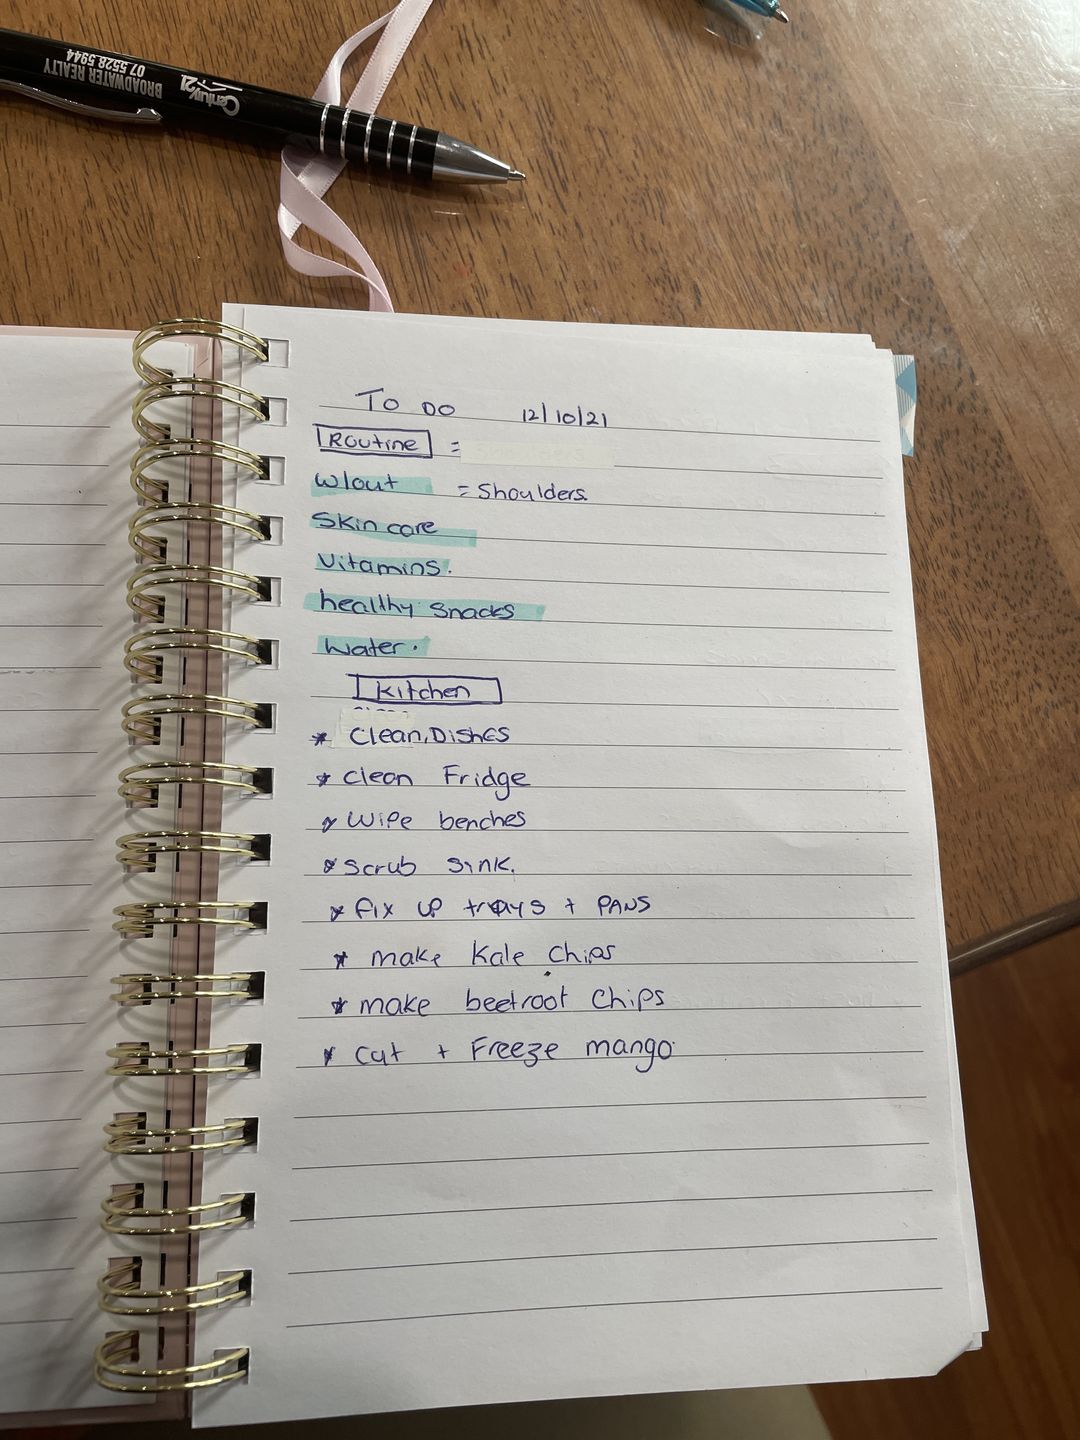 Century 21
BROADWATER REALTY
07 5528 5944
TO DO 12/10/21
Routine =
W/out = Shoulders.
Skin care
Vitamins.
healthy snacks
Water.
Kitchen
* Clean, DISHES
* Clean Fridge
* Wipe benches
* Scrub sink.
* Fix up trays + PANS
* make Kale Chips
* make beetroot Chips
* Cut + Freeze mango